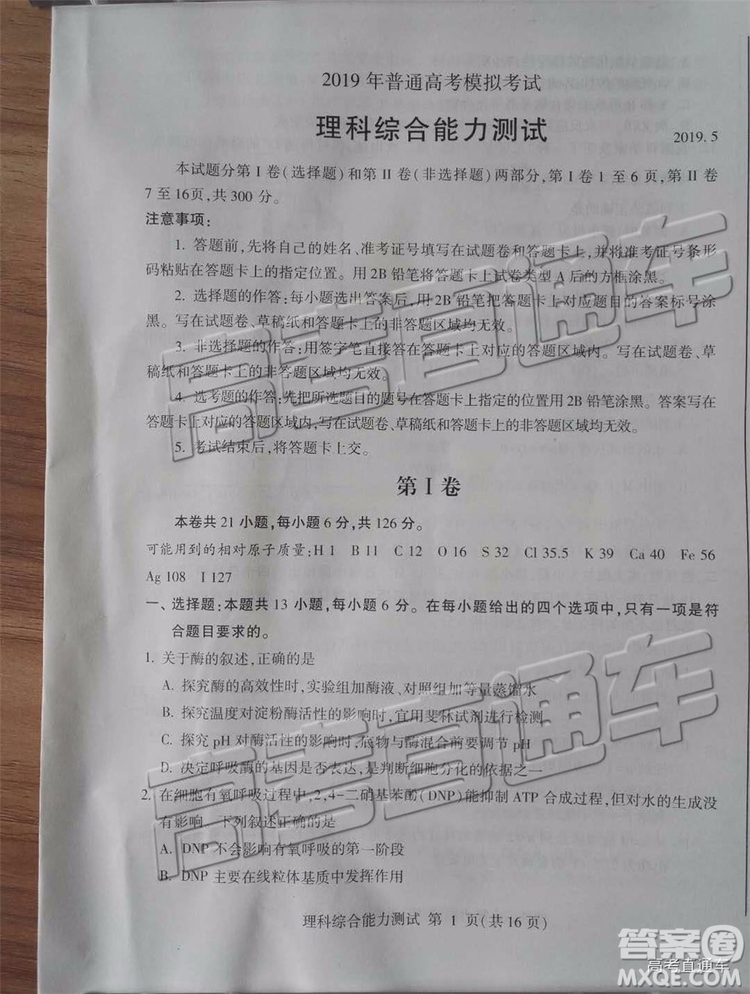 2019 年普通高考模拟考试
理科综合能力测试
2019. 5
本试题分第 I 卷(选择题)和第 II 卷(非选择题)两部分,第 I 卷 1 至 6 页,第 II 卷
7 至16页,共 300 分。
注意事项:
1. 答题前,先将自己的姓名、准考证号填写在试题卷和答题卡上,并将准考证号条形
码粘贴在答题卡上的指定位置。用 2B 铅笔将答题卡上试卷类型 A 后的方框涂黑。
2. 选择题的作答:每小题选出答案后,用 2B 铅笔把答题卡上对应题目的答案标号涂
黑。写在试题卷、草稿纸和答题卡上的非答题区域均无效。
3. 非选择题的作答:用签字笔直接答在答题卡上对应的答题区域内。写在试题卷、草
稿纸和答题卡上的非答题区域均无效。
4. 选考题的作答:先把所选题目的题号在答题卡上指定的位置用 2B 铅笔涂黑。答案写在
答题卡上对应的答题区域内,写在试题卷、草稿纸和答题卡上的非答题区域均无效。
5. 考试结束后,将答题卡上交。
第 I 卷
本卷共 21 小题,每小题 6 分,共 126 分。
可能用到的相对原子质量:H 1 B 11 C 12 O 16 S 32 Cl 35.5 K 39 Ca 40 Fe 56
Ag 108 I 127
一、选择题:本题共 13 小题,每小题 6 分。在每小题给出的四个选项中,只有一项是符
合题目要求的。
1. 关于酶的叙述,正确的是
A. 探究酶的高效性时,实验组加酶液、对照组加等量蒸馏水
B. 探究温度对淀粉酶活性的影响时,宜用斐林试剂进行检测
C. 探究 pH 对酶活性的影响时,底物与酶混合前要调节 pH
D. 决定呼吸酶的基因是否表达,是判断细胞分化的依据之一
2. 在细胞有氧呼吸过程中,2,4-二硝基苯酚(DNP)能抑制 ATP 合成过程,但对水的生成没
有影响。下列叙述正确的是
A. DNP 不会影响有氧呼吸的第一阶段
B. DNP 主要在线粒体基质中发挥作用
理科综合能力测试 第 1 页(共 16 页)
高考直通车
高考直通车
答案圈
高考直通车
MXQE.COM